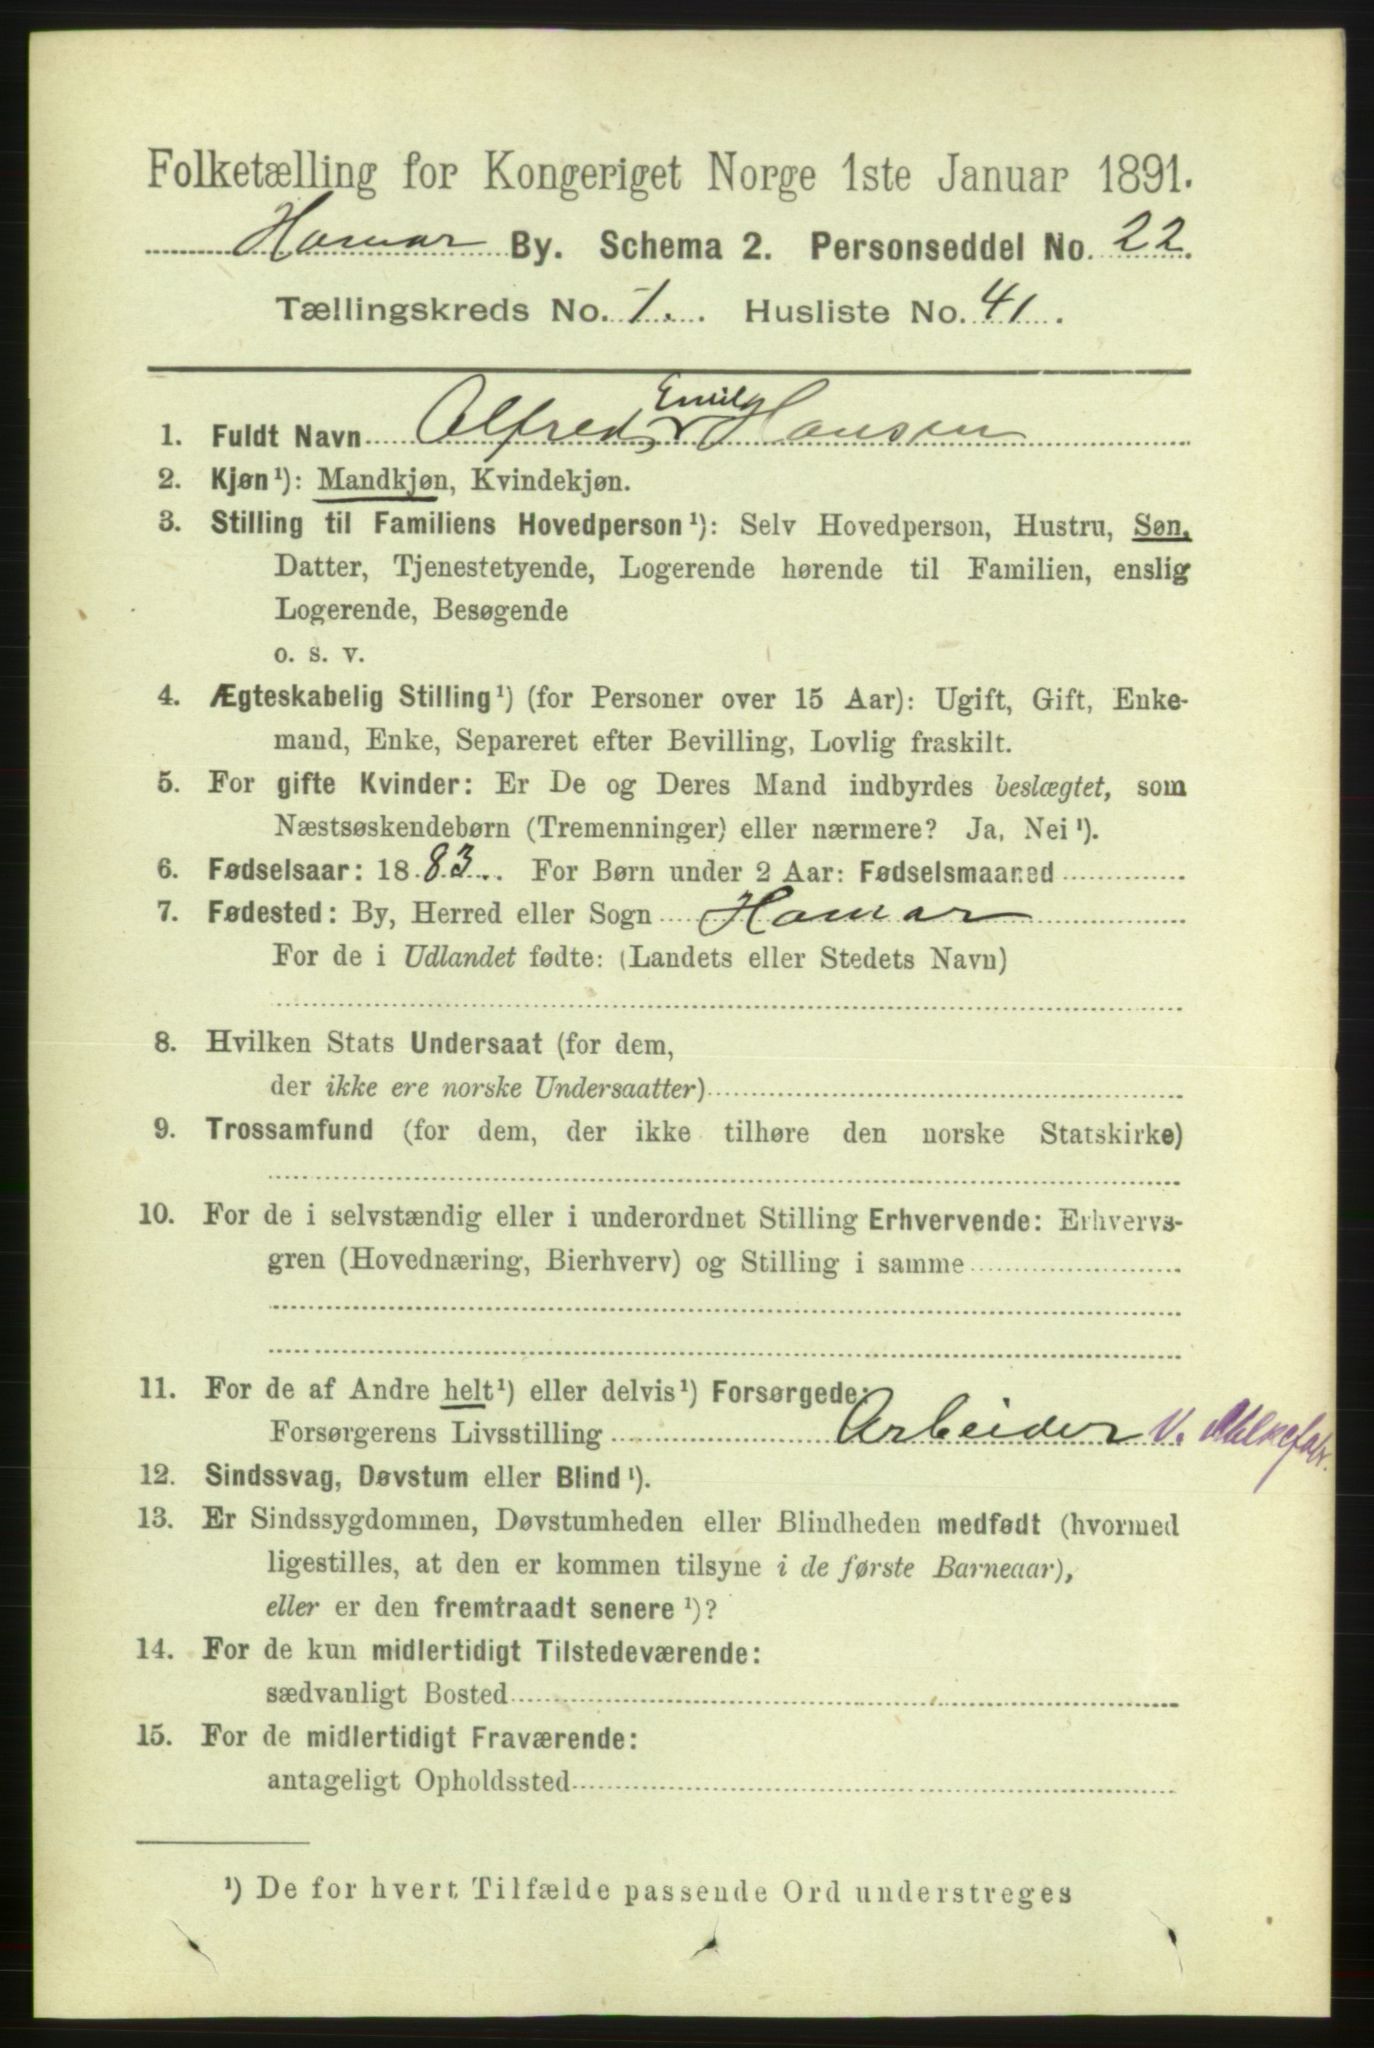 Folketælling for Kongeriget Norge 1ste Januar 1891.
Hamar By. Schema 2. Personseddel No. 22.
Tællingskreds No. 1. Husliste No. 41.
Emil
1. Fuldt Navn Alfred Hansen
2. Kjøn¹): Mandkjøn, Kvindekjøn.
3. Stilling til Familiens Hovedperson¹): Selv Hovedperson, Hustru, Søn,
Datter, Tjenestetyende, Logerende hørende til Familien, enslig
Logerende, Besøgende
o. s. v.
4. Ægteskabelig Stilling¹) (for Personer over 15 Aar): Ugift, Gift, Enke-
mand, Enke, Separeret efter Bevilling, Lovlig fraskilt.
5. For gifte Kvinder: Er De og Deres Mand indbyrdes beslægtet, som
Næstsøskendebørn (Tremenninger) eller nærmere? Ja, Nei¹).
6. Fødselsaar: 1883. For Børn under 2 Aar: Fødselsmaaned
7. Fødested: By, Herred eller Sogn Hamar
For de i Udlandet fødte: (Landets eller Stedets Navn)
8. Hvilken Stats Undersaat (for dem,
der ikke ere norske Undersaatter)
9. Trossamfund (for dem, der ikke tilhøre den norske Statskirke)
10. For de i selvstændig eller i underordnet Stilling Erhvervende: Erhvervs-
gren (Hovednæring, Bierhverv) og Stilling i samme
11. For de af Andre helt¹) eller delvis¹) Forsørgede:
Forsørgerens Livsstilling Arbeider v. Mlkefabr.
12. Sindssvag, Døvstum eller Blind¹).
13. Er Sindssygdommen, Døvstumheden eller Blindheden medfødt (hvormed
ligestilles, at den er kommen tilsyne i de første Barneaar),
eller er den fremtraadt senere¹)?
14. For de kun midlertidigt Tilstedeværende:
sædvanligt Bosted
15. For de midlertidigt Fraværende:
antageligt Opholdssted
¹) De for hvert Tilfælde passende Ord understreges